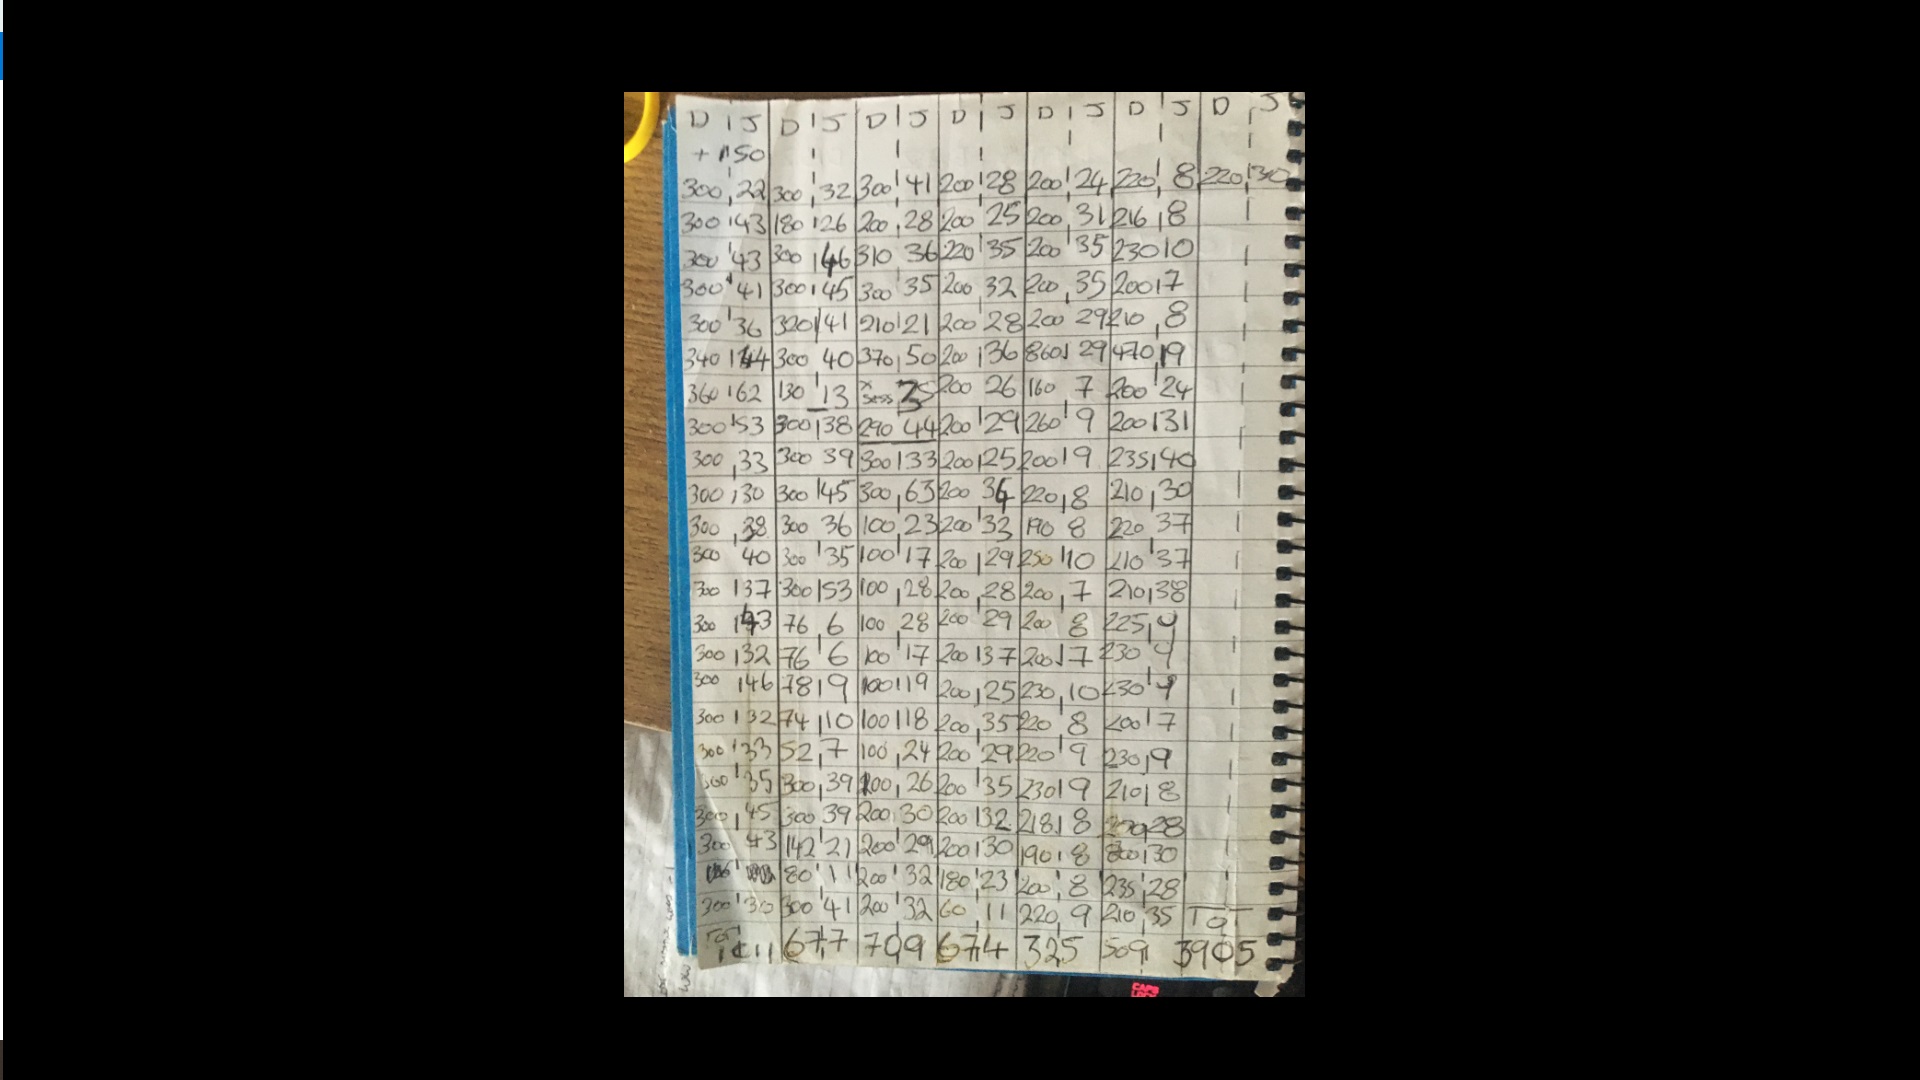 D J D J D J D J D J D J D J
+ 150
300 22 300 32 300 41 200 28 200 24 220 8 220 30
300 43 180 26 200 28 200 25 200 31 216 8
300 43 300 46 310 36 220 35 200 35 230 10
300 41 300 45 300 35 200 32 200 35 200 7
300 36 320 41 210 21 200 28 200 29 210 8
340 44 300 40 370 50 200 36 860 29 470 19
360 62 130 13 200 26 160 7 200 24
300 53 300 38 290 44 200 29 260 9 200 31
300 33 300 39 300 33 200 25 200 9 235 40
300 30 300 45 300 63 200 34 220 8 210 30
300 38 300 36 100 23 200 33 190 8 220 37
300 40 300 35 100 17 200 29 250 10 210 37
300 37 300 53 100 28 200 28 200 7 210 38
300 43 76 6 100 28 200 29 200 8 225 9
300 32 76 6 100 17 200 37 200 7 230 9
300 46 78 9 100 19 200 25 230 10 230 9
300 32 74 10 100 18 200 35 220 8 200 7
300 33 52 7 100 24 200 29 220 9 230 9
300 35 300 39 26 200 35 230 9 210 8
300 45 300 39 200 30 200 32 218 8 28
300 43 142 21 200 29 200 30 190 8 30
80 11 200 32 180 23 200 8 235 28
300 30 300 41 200 32 60 11 220 9 210 35 TOT
TOT 677 709 674 325 509 3905
CAPS LOCK